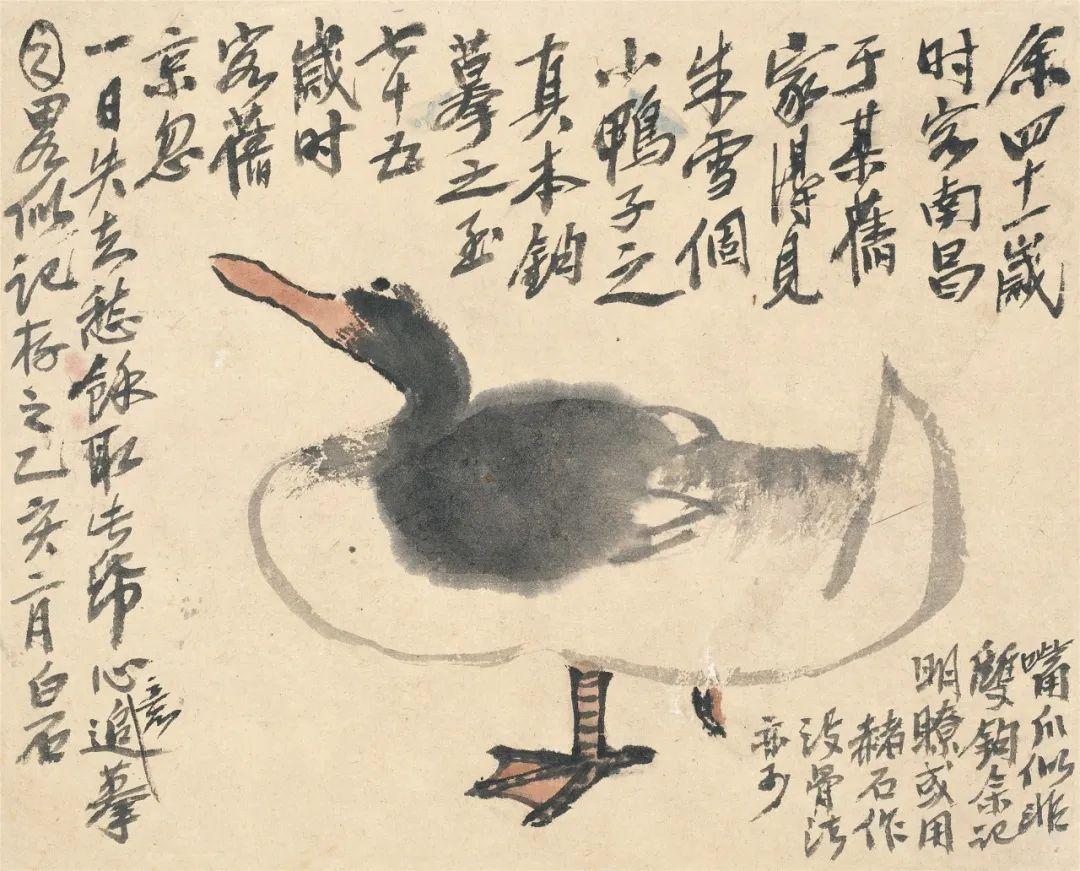 余四十一歲
时客南昌
于某舊
家得見
朱雪個
小鴨子之
真本鈎
摹之至
七十五
歲时
客舊
京忽
一日失去愁餘取此紙心意追摹
之畧似记存之乙亥二月白石
嘴爪似非
雙鈎余记
明瞭或用
赭石作
没骨法
亦可